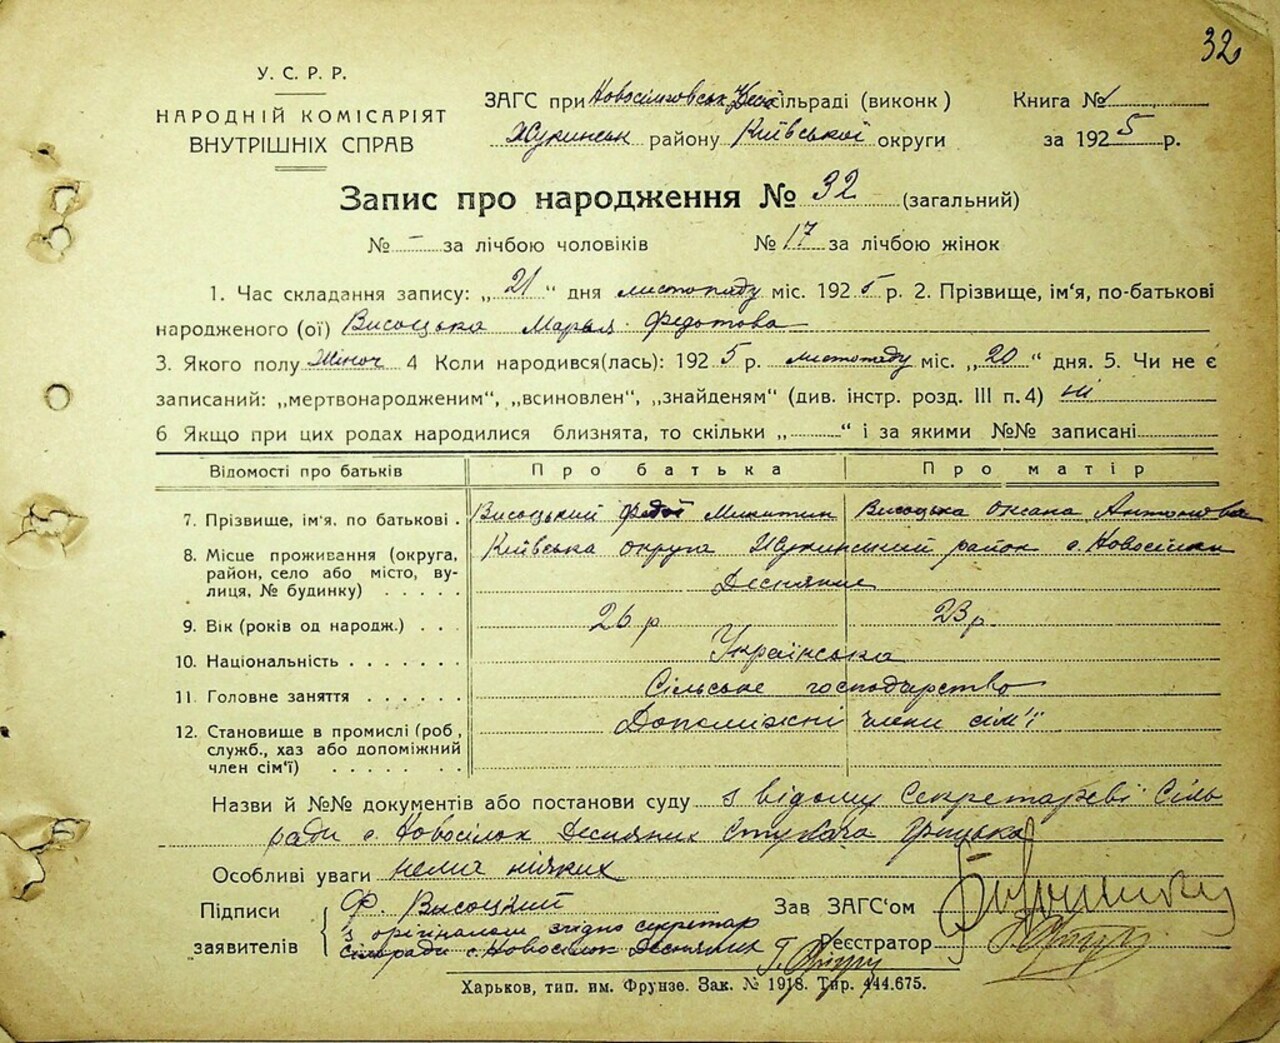 32
У. С. Р. Р.
НАРОДНІЙ КОМІСАРІЯТ
ВНУТРІШНІХ СПРАВ
ЗАГС при Новосілковськ Десн сільраді (виконк)
Жукинськ району Київської округи
Книга № 1
за 1925 р.
Запис про народження № 32 (загальний)
№ – за лічбою чоловіків № 17 за лічбою жінок
1. Час складання запису: „21“ дня листопаду міс. 1925 р. 2. Прізвище, ім'я, по-батькові
народженого (ої) Висоцька Марья Федотова
3. Якого полу Жіноч 4 Коли народився(лась): 1925 р. листопаду міс. „20“ дня. 5. Чи не є
записаний: „мертвонародженим“, „всиновлен“, „знайденям“ (див. інстр. розд. III п. 4) ні
6 Якщо при цих родах народилися близнята, то скільки „ “ і за якими №№ записані
Відомості про батьків Про батька Про матір
7. Прізвище, ім'я. по батькові . Висоцький Федот Микитин Висоцька Оксана Антонова
8. Місце проживання (округа, Київська округа Жукинський район с. Новосілки
район, село або місто, ву- Десняние
лиця, № будинку) . . . . .
9. Вік (років од народж.) . . . 26 р 23 р.
10. Національність . . . . . . . Українська
11. Головне заняття . . . . . . Сільське господарство
12. Становище в промислі (роб, Допоміжні члени сім'ї
служб., хаз або допоміжний
член сім'ї) . . . . . .
Назви й №№ документів або постанови суду з відому Секретареві Сіль
ради с. Новосілок Десняних Грицька
Особливі уваги нема ніяких
Підписи
заявителів
Ф. Высоцкий
з орігіналом згідно секретар
сільради с. Новосілок Десняних
Зав ЗАГС'ом
Реєстратор
Харьков, тип. им. Фрунзе. Зак. № 1918. Тир. 444.675.